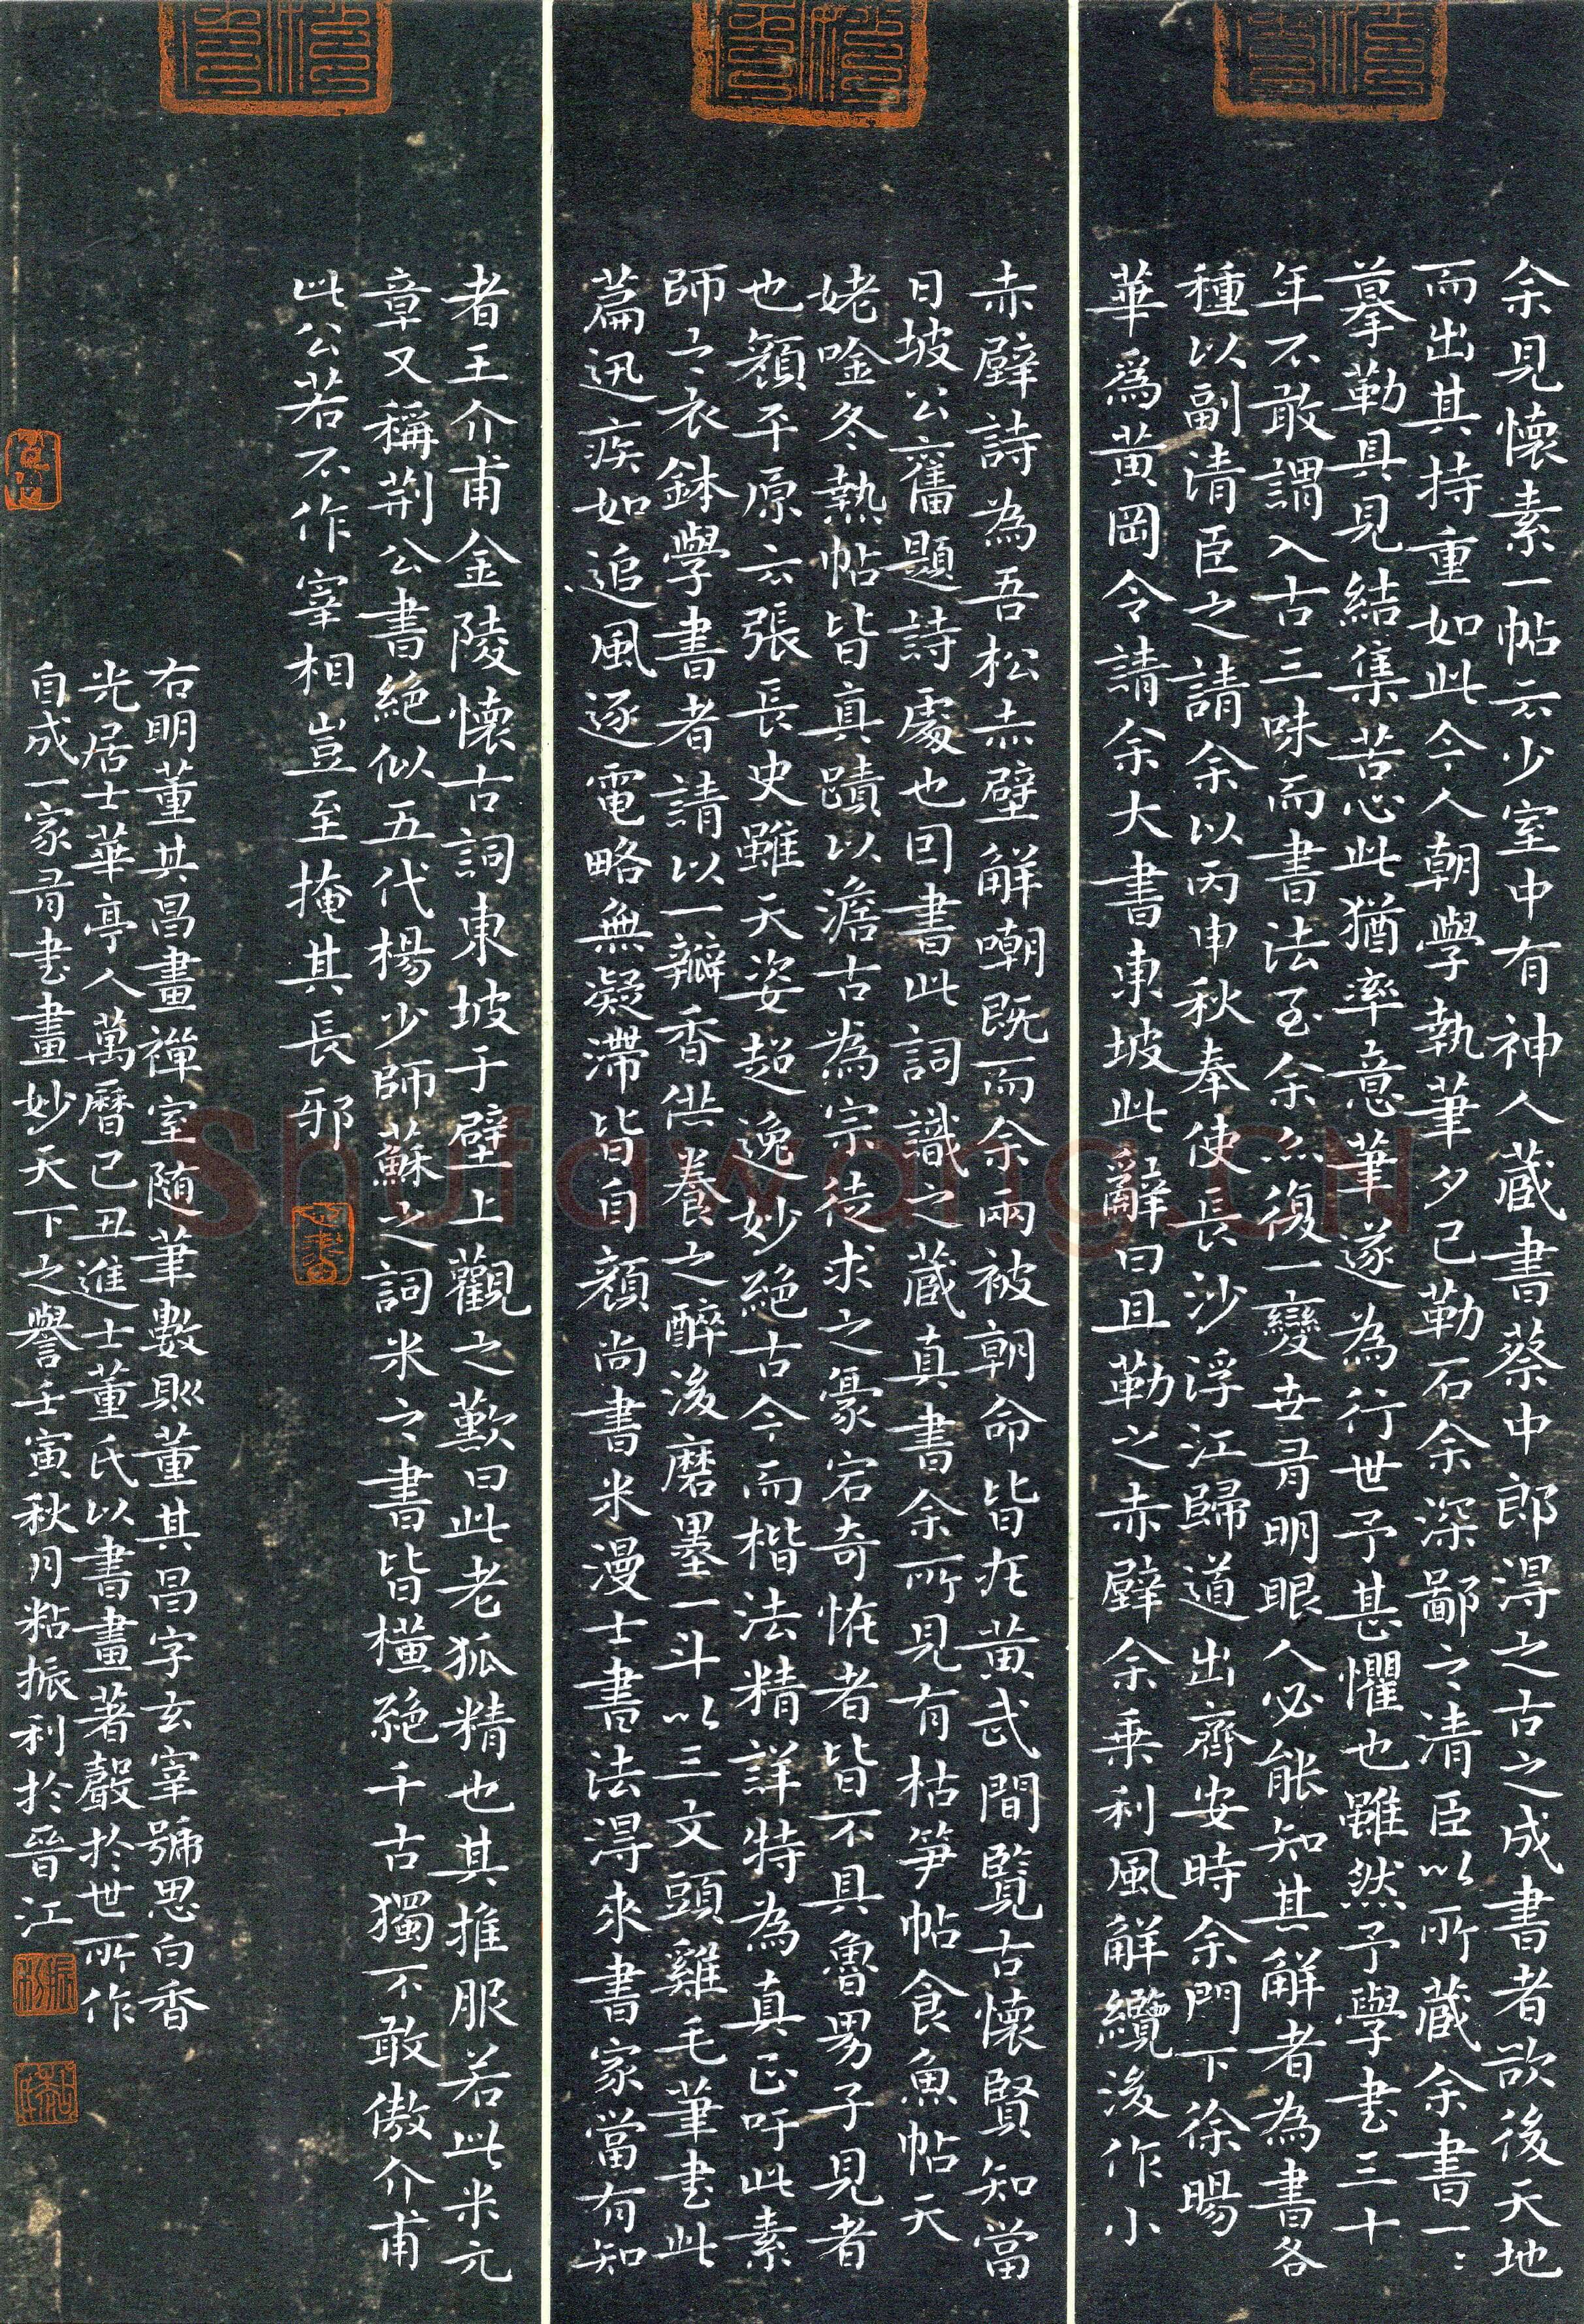 余見懷素一帖云少室中有神人藏書蔡中郎得之古之成書者欲後天地
而出其持重如此今人朝學執筆夕已勒石余深鄙之清臣以所藏余書一:
摹勒具見結集苦心此猶率意筆遂為行世予甚懼也雖然予學書三十
年不敢謂入古三味而書法至余亦復一變世有明眼人必能知其解者為書各
種以副清臣之請余以丙申秋奉使長沙浮江歸道出齊安時余門下徐暘
華爲黃岡令請余大書東坡此辭曰且勒之赤壁余乘利風解纜後作小
赤壁詩為吾松赤壁解嘲既而余兩被朝命皆在黃武間覽古懷賢知當
日坡公舊題詩處也因書此詞識之藏真書余所見有枯筍帖食魚帖天
姥唫冬熱帖皆真蹟以澹古為宗徒求之豪宕奇恠者皆不具魯男子見者
也顏平原云張長史雖天姿超逸妙絕古今而楷法精詳特為真正吁此素
師之衣鉢學書者請以一瓣香供養之醉後磨墨一斗以三文頭雞毛筆書此
篇迅疾如追風逐電略無凝滯皆自顏尚書米漫士書法得來書家當有知
者王介甫金陵懷古詞東坡于壁上觀之歎曰此老狐精也其推服若此米元
章又稱荆公書絕似五代楊少師蘇之詞米之書皆橫絕千古獨不敢傲介甫
此公若不作宰相豈至掩其長邪
右明董其昌畫禪室随筆數則董其昌字玄宰號思白香
光居士華亭人萬曆己丑進士董氏以書畫著聲於世所作
自成一家有書畫妙天下之譽壬寅秋月粘振利於晉江
Shufawang.CN